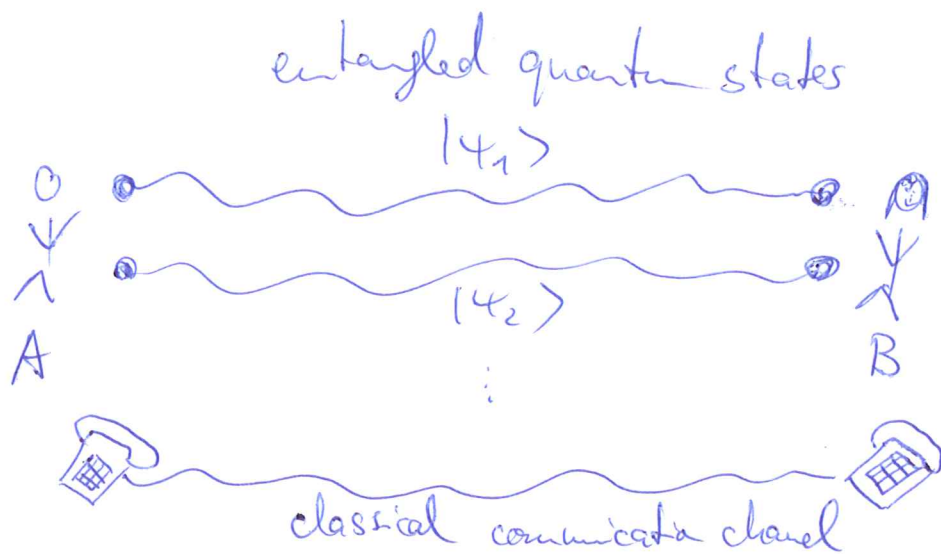 entangled quantum states
|ψ₁>
|ψ₂>
A
B
⋮
classical communication channel